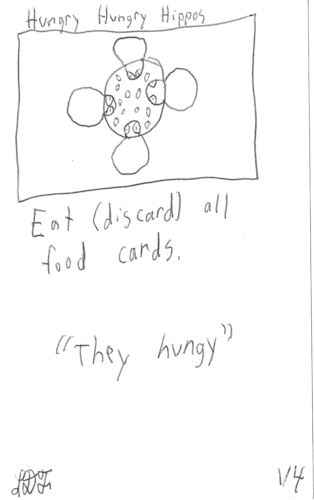 Hungry Hungry Hippos
Eat (discard) all
food cards.
"They hungy"
1/4